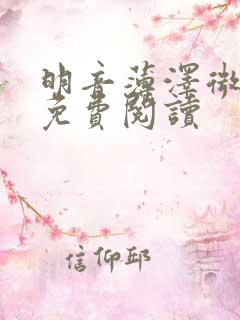 明音薄澤微
免費閱讀
信仰邱